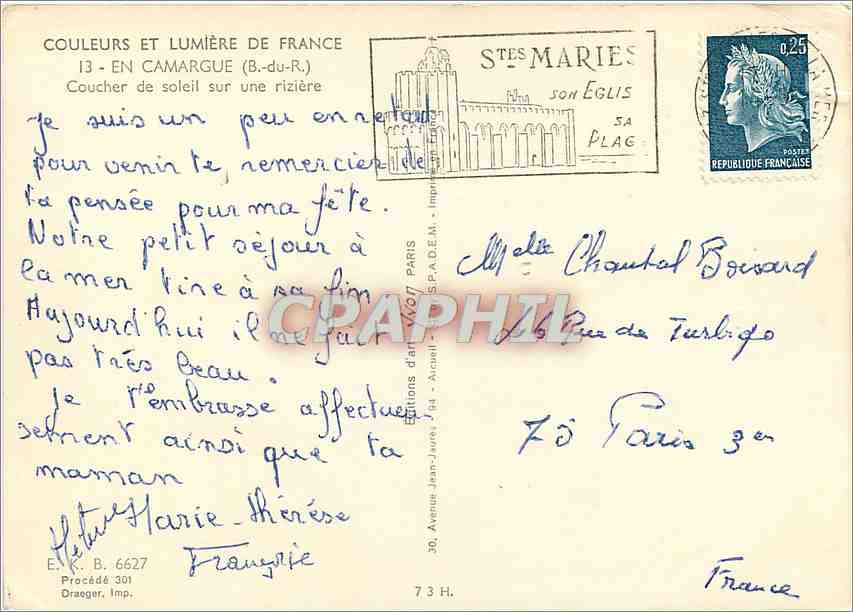 COULEURS ET LUMIÈRE DE FRANCE
13 - EN CAMARGUE (B.-du-R.)
Coucher de soleil sur une rizière
Je suis un peu en retard
pour venir te remercier de
ta pensée pour ma fête.
Notre petit séjour à
la mer tire à sa fin
Aujourd'hui il ne fait
pas très beau.
Je t'embrasse affectueu
sement ainsi que ta
maman
Marie-thérèse
E. K. B. 6627
Procédé 301
Draeger, Imp.
STES MARIES
SON EGLIS
SA
PLAG
0,25
POSTES
REPUBLIQUE FRANÇAISE
Melle Chantal Boisard
Rue de Turbigo
75 Paris 3em
France
Editions d'art Yvon PARIS
30, Avenue Jean-Jaurès, 94 - Arcueil - S.P.A.D.E.M. - Imprimé en France
73 H.
CPAPHIL